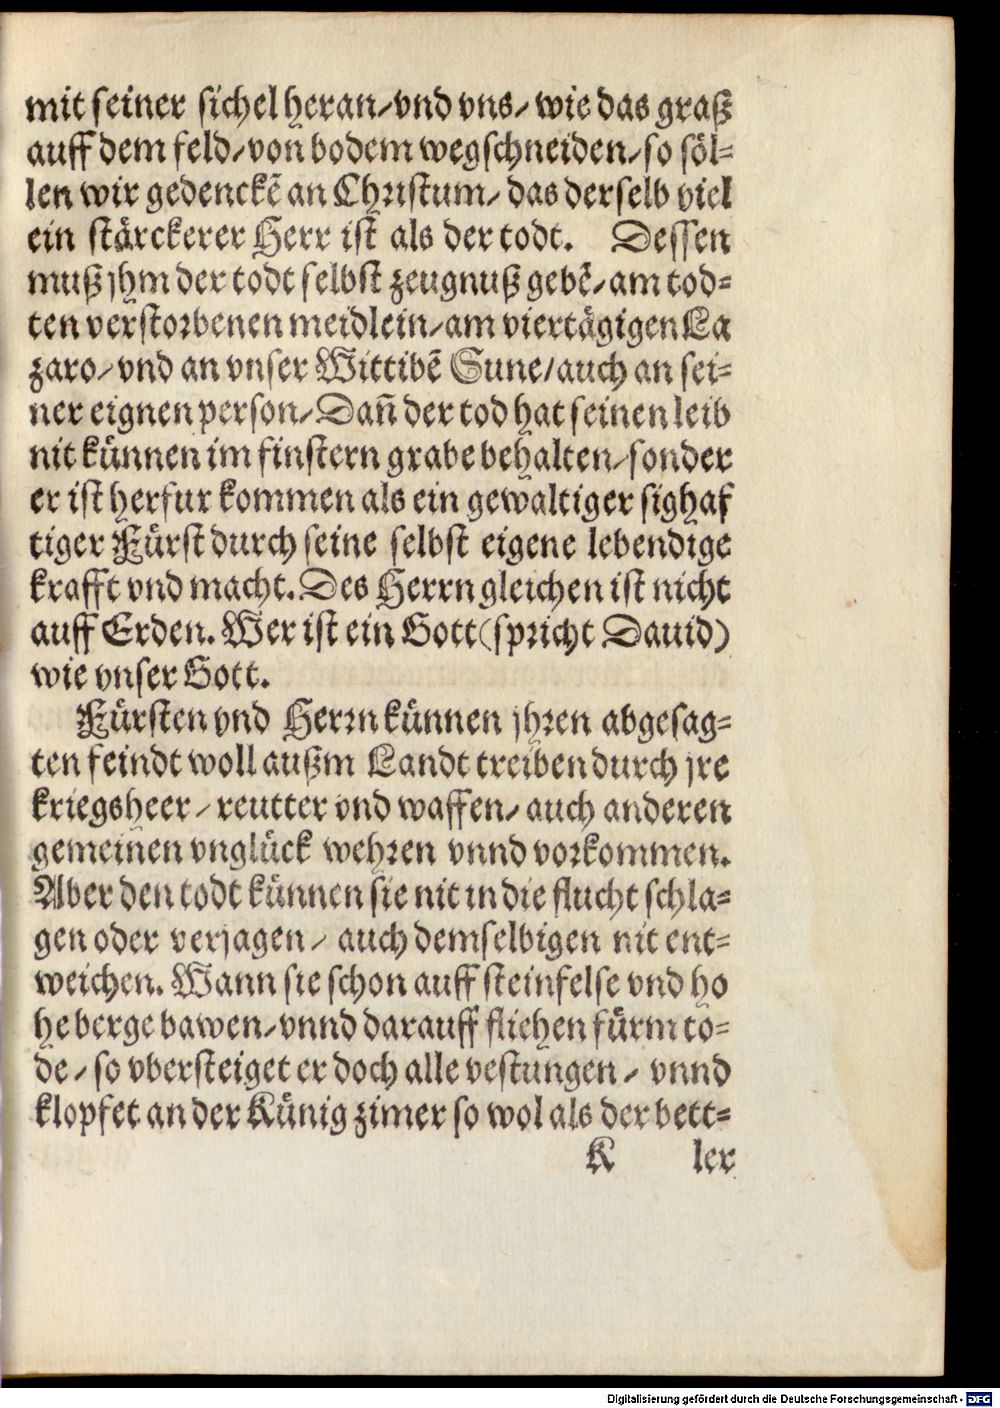 mit seiner sichel heran/vnd vns/wie das graß
auff dem feld/von bodem wegschneiden/so söl-
len wir gedenckē an Christum/das derselb viel
ein stärckerer Herr ist als der todt. Dessen
muß jhm der todt selbst zeugnuß gebē/am tod-
ten verstorbenen meidlein/am viertägigen La
zaro/vnd an vnser Wittibē Sune/auch an sei-
ner eignen person/Dañ der tod hat seinen leib
nit künnen im finstern grabe behalten/sonder
er ist herfur kommen als ein gewaltiger sighaf
tiger Fürst durch seine selbst eigene lebendige
krafft vnd macht. Des Herrn gleichen ist nicht
auff Erden. Wer ist ein Gott (spricht Dauid)
wie vnser Gott.
Fürsten vnd Herrn künnen jhren abgesag-
ten feindt woll außm Landt treiben durch jre
kriegsheer/reutter vnd waffen/auch anderen
gemeinen vnglück wehren vnnd vorkommen.
Aber den todt künnen sie nit in die flucht schla-
gen oder verjagen/auch demselbigen nit ent-
weichen. Wann sie schon auff steinfelse vnd ho
he berge bawen/vnnd darauff fliehen fürm to-
de/so vbersteiget er doch alle vestungen/vnnd
klopfet an der Künig zimer so wol als der bett-
K ler
Digitalisierung gefördert durch die Deutsche Forschungsgemeinschaft - DFG